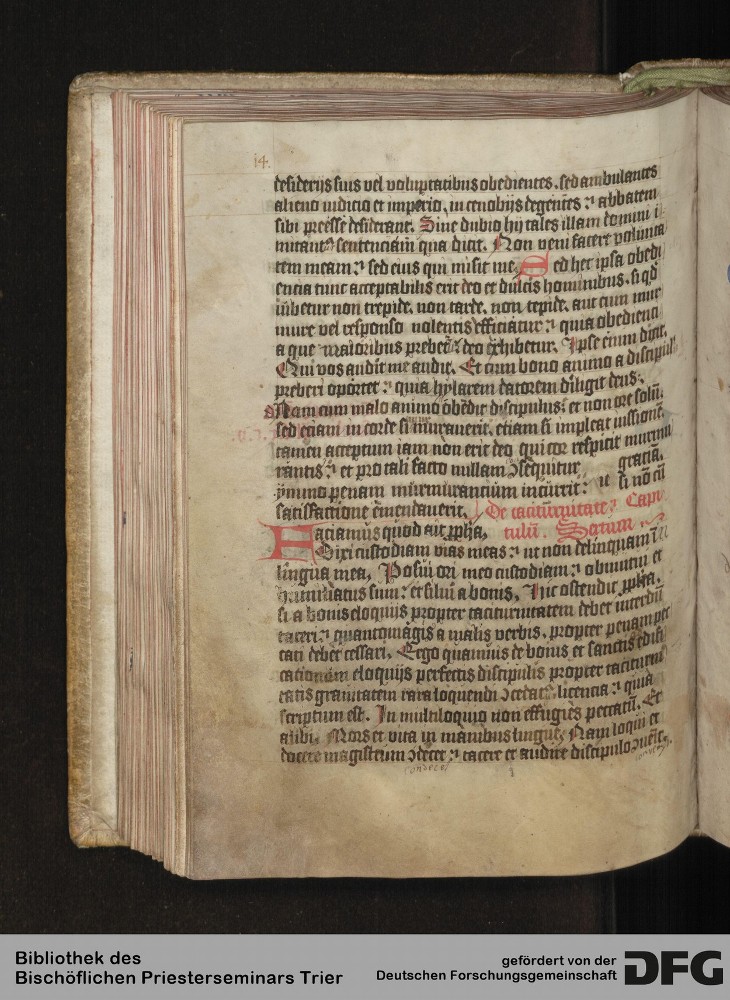 14.
desiderijs suis vel voluptatibus obedientes. sed ambulantes
alieno iudicio et imperio. in cenobijs degentes et abbatem
sibi preesse desiderant. Sine dubio hij tales illam domini i
mitant sentenciam qua dicit. Non veni facere volunta
tem meam sed eius qui misit me. Sed hec ipsa obedi
encia tunc acceptabilis erit deo et dulcis hominibus. si qd
iubetur non trepide. non tarde. non tepide. aut cum mur
mure vel responso nolentis efficiatur quia obedienci
a que maioribus prebet deo exhibetur. Ipse enim dixit.
Qui vos audit me audit. Et cum bono animo a discipulis
preberi oportet quia hylarem datorem diligit deus.
Nam cum malo animo obedit discipulus et non ore solu.
sed etiam in corde si murmuraverit. etiam si impleat iussione.
tamen acceptum iam non erit deo qui cor respicit murmu
rantis et pro tali facto nullam ɔsequitur graciam.
ymmo penam murmurantium incurrit si no cu
satisfactione emendaverit. De taciturnitate Capi
Faciamus quod ait ppha, tulu. Sextum
Dixi custodiam vias meas ut non delinquam i
lingua mea, Posui ori meo custodiam obmutui et
humiliatus sum et silui a bonis, Hic ostendit ppha.
si a bonis eloquijs propter taciturnitatem debet interdu
taceri quantomagis a malis verbis. propter penam pec
cati debet cessari. Ergo quamvis de bonis et sanctis edifi
cationum eloquijs perfectis discipulis propter taciturni
tatis gravitatem rara loquendi ɔcedat licencia quia
scriptum est. In multiloquio non effugies peccatu. Et
alibi. Mors et vita in manibus lingue, Nam loqui et
docere magistrum ɔdecet tacere et audire discipulo ɔuenit.
condecet
Bibliothek des
Bischöflichen Priesterseminars Trier
gefördert von der
Deutschen Forschungsgemeinschaft
DFG